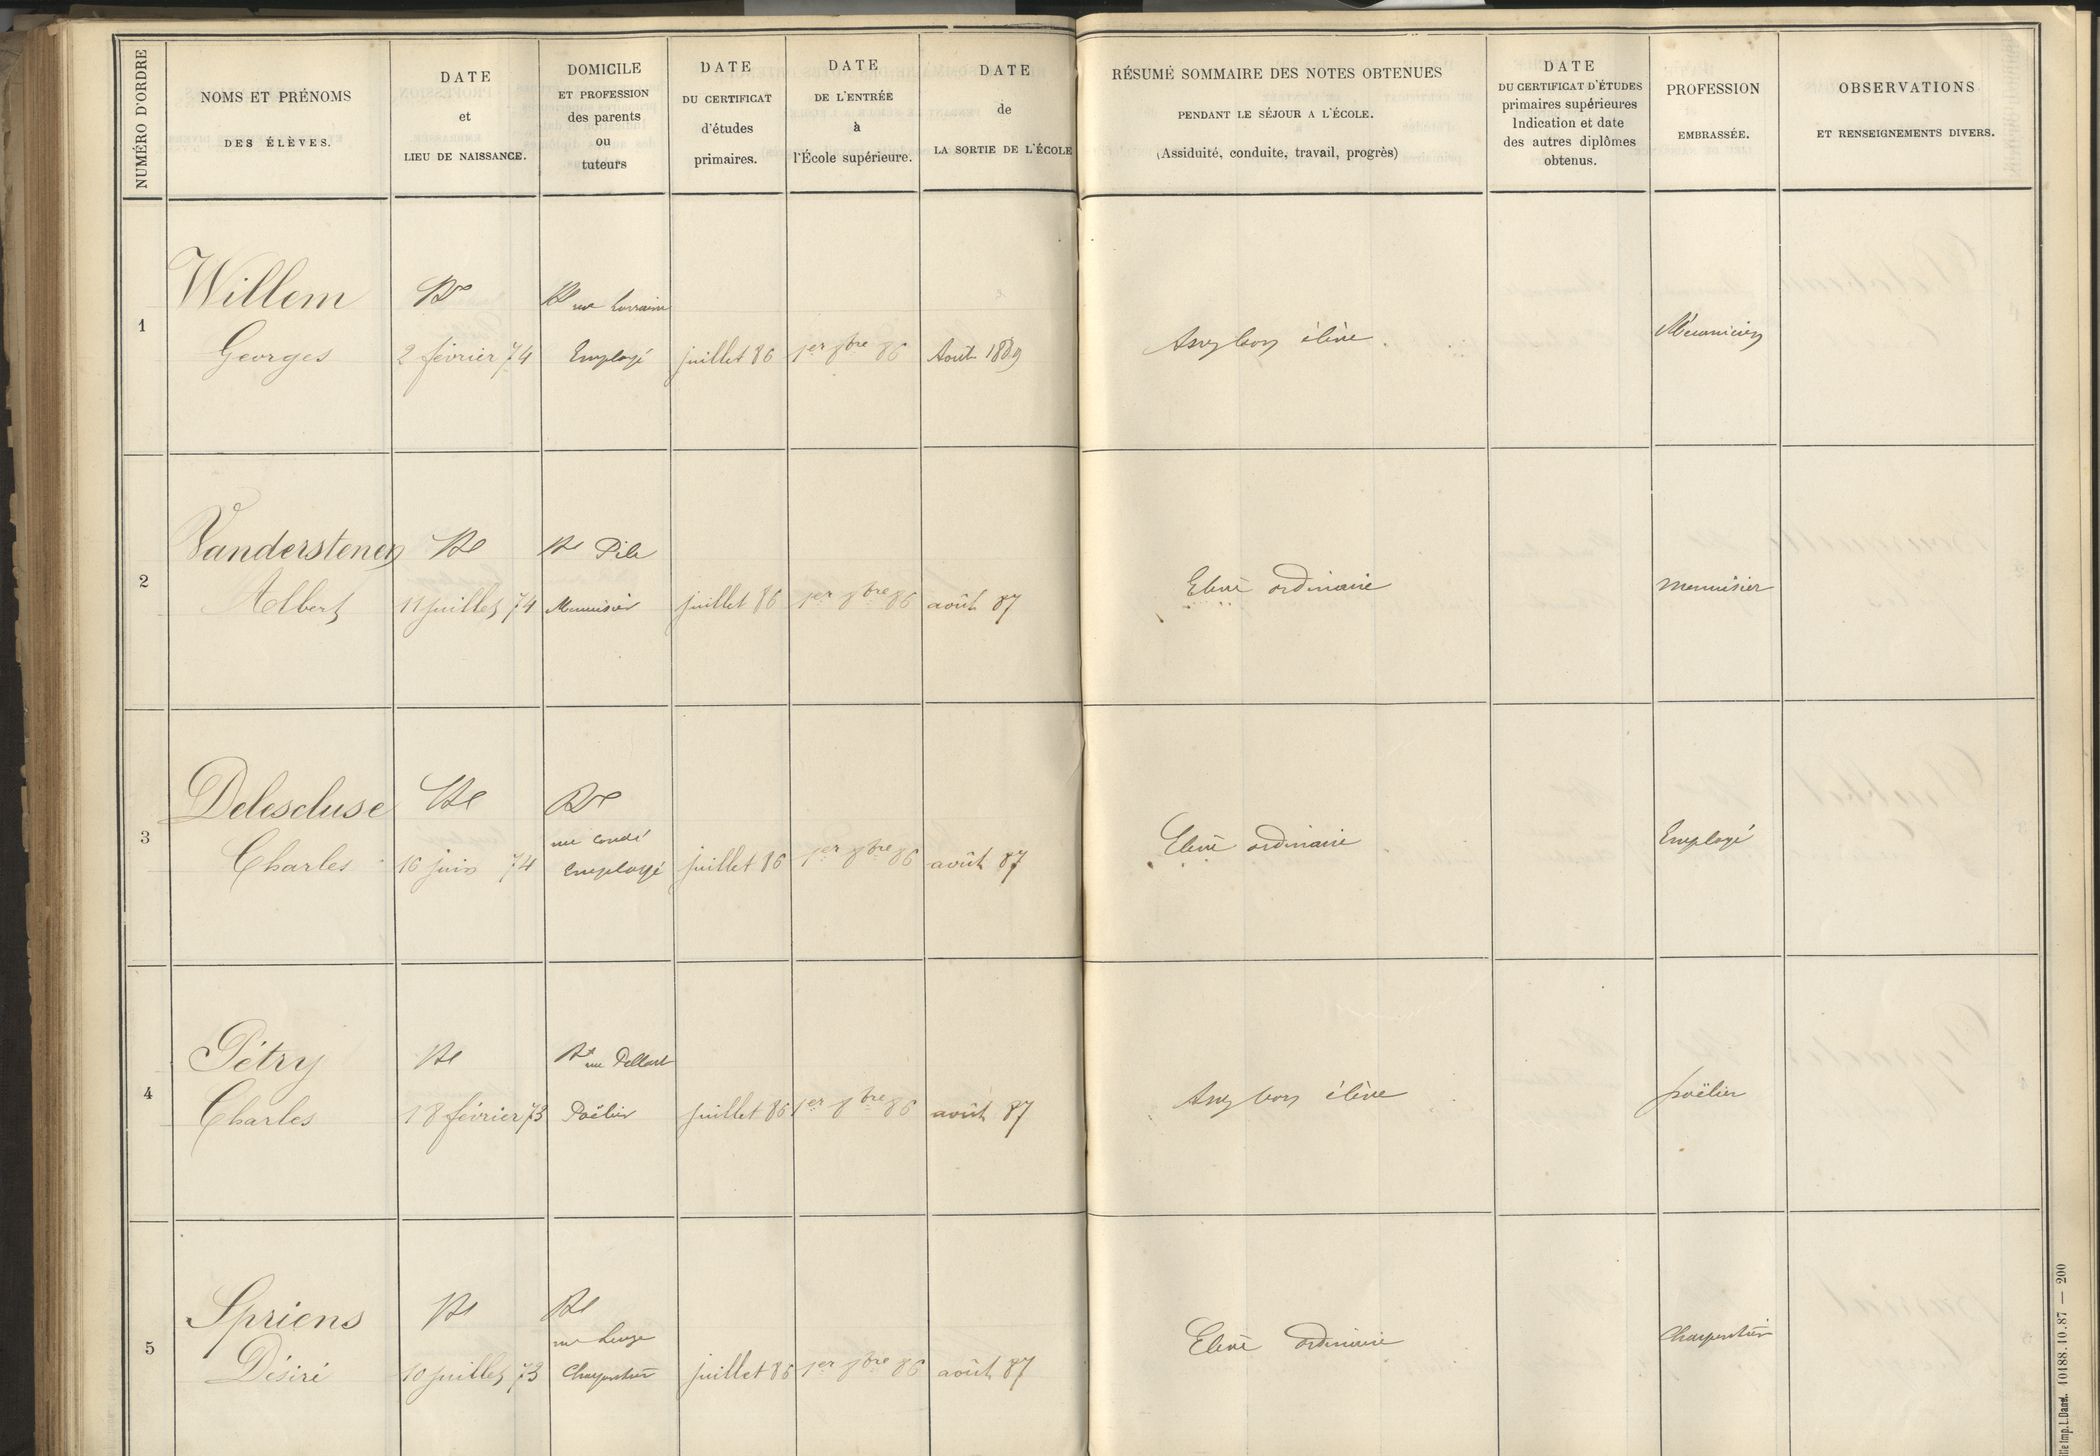 NUMÉRO D'ORDRE
NOMS ET PRÉNOMS
DES ÉLÈVES.
DATE
et
LIEU DE NAISSANCE.
DOMICILE
ET PROFESSION
des parents
ou
tuteurs
DATE
DU CERTIFICAT
d'études
primaires.
DATE
DE L'ENTRÉE
à
l'École supérieure.
DATE
de
LA SORTIE DE L'ÉCOLE
RÉSUMÉ SOMMAIRE DES NOTES OBTENUES
PENDANT LE SÉJOUR A L'ÉCOLE.
(Assiduité, conduite, travail, progrès)
DATE
DU CERTIFICAT D'ÉTUDES
primaires supérieures
Indication et date
des autres diplômes
obtenus.
PROFESSION
EMBRASSÉE.
OBSERVATIONS
ET RENSEIGNEMENTS DIVERS.
1
Willem
Georges
Rx
2 février 74
Rx rue Lorraine
Employé
juillet 86
1er 8bre 86
Août 1889
Assez bon élève.
Mécanicien
2
Vanderstenen
Albert
Rx
11 juillet 74
Rx Pile
Menuisier
juillet 86
1er 8bre 86
août 87
Elève ordinaire
menuisier
3
Delescluse
Charles
Rx
16 juin 74
Rx
rue Condé
employé
juillet 86
1er 8bre 86
août 87
Elève ordinaire
Employé
4
Pétry
Charles
Rx
18 février 73
Rx rue Pellart
Poëlier
juillet 86
1er 8bre 86
août 87
Assez bon élève
poëlier
5
Spriens
Désiré
Rx
10 juillet 73
Rx
rue Leuze
Charpentier
juillet 86
1er 8bre 86
août 87
Elève ordinaire
Charpentier
Imp. L. Danel. 10188.10.87 — 200